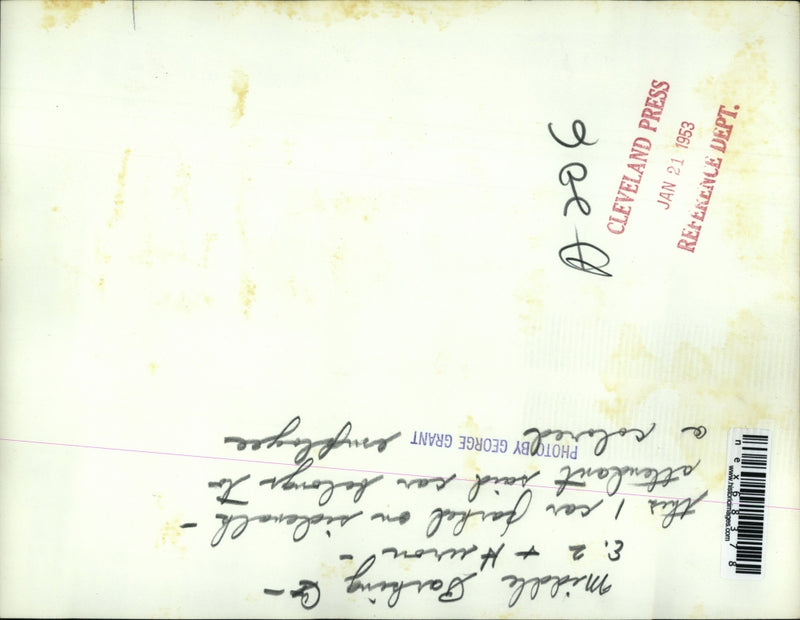 Middle Parking
E. 2 + Huron -
this 1 car parked on sidewalk -
attendant said car belongs to
a colored employee
PHOTO BY GEORGE GRANT
CLEVELAND PRESS
JAN 21 1953
REFERENCE DEPT.
www.historicimages.com
nex68378